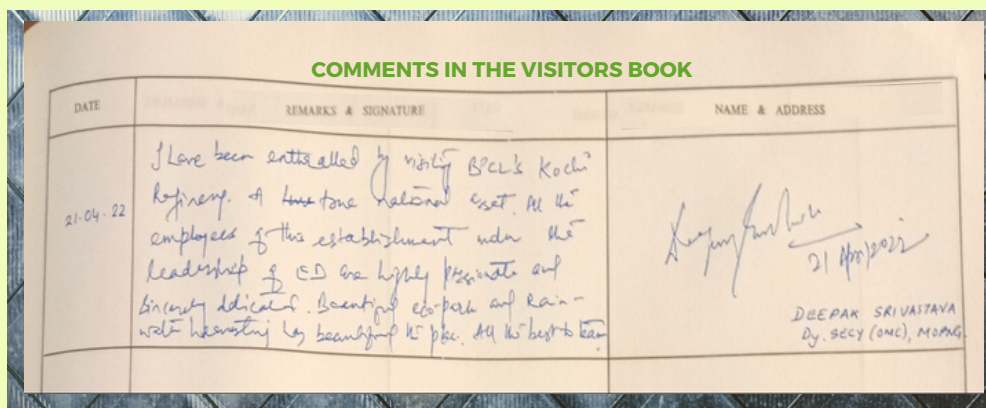 COMMENTS IN THE VISITORS BOOK
DATE REMARKS & SIGNATURE NAME & ADDRESS
21-04-22
I have been enthralled by visiting BPCL's Kochi
Refinery. A true national asset. All the
employees of this establishment under the
leadership of ED are highly passionate and
sincerely dedicated. Beautiful eco-park and Rain-
water harvesting has beautified the place. All the best to team
21 Apr/2022
DEEPAK SRIVASTAVA
Dy. SECY (OMC), MOPNG.